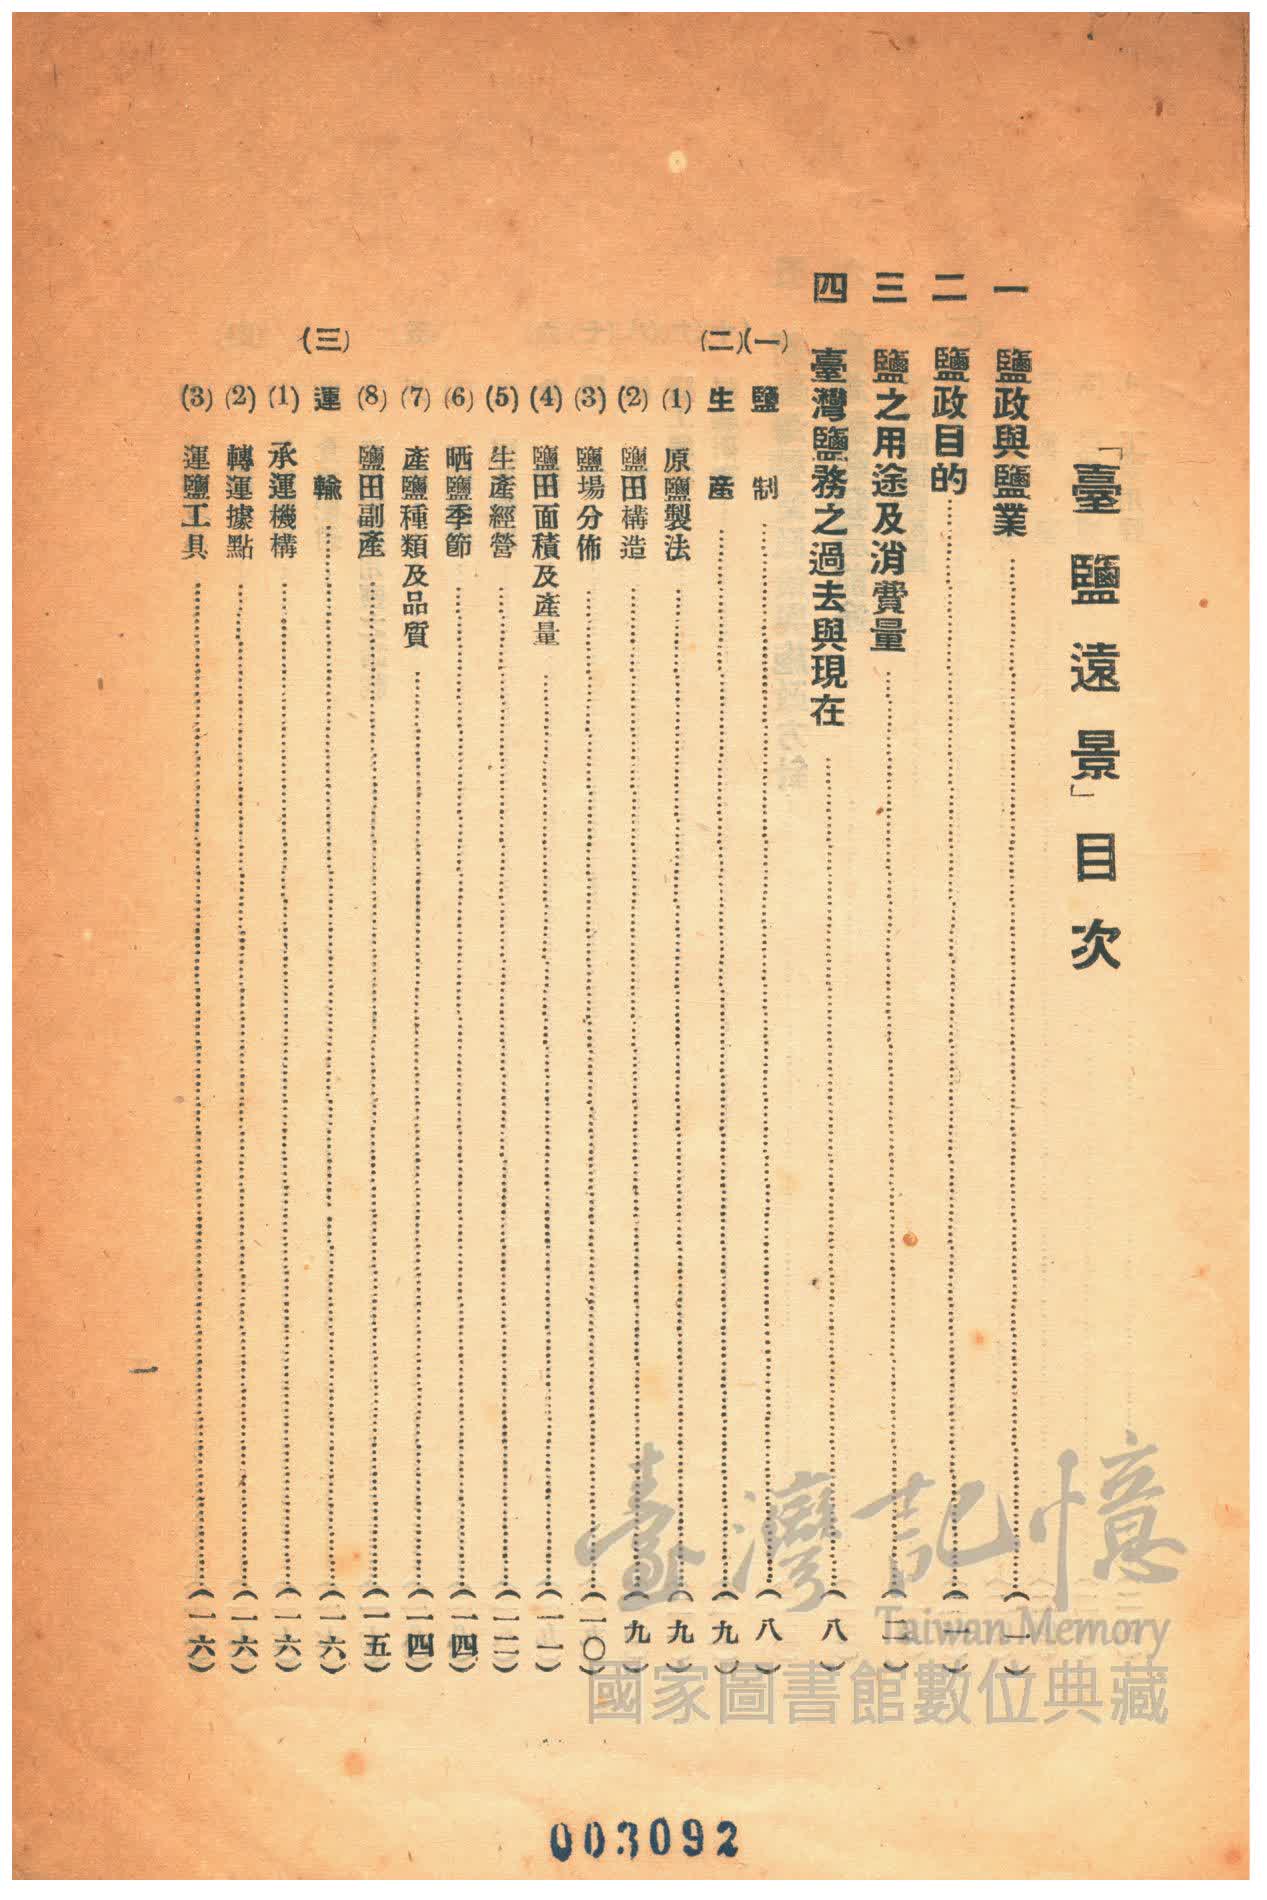 「臺鹽遠景」目次
一 鹽政與鹽業……(一)
二 鹽政目的……(一)
三 鹽之用途及消費量……(二)
四 臺灣鹽務之過去與現在……(八)
(一) 鹽 制……(八)
(二) 生 產……(九)
(1) 原鹽製法……(九)
(2) 鹽田構造……(九)
(3) 鹽場分佈……(一〇)
(4) 鹽田面積及產量……(一一)
(5) 生產經營……(一二)
(6) 晒鹽季節……(一四)
(7) 產鹽種類及品質……(一四)
(8) 鹽田副產……(一五)
(三) 運 輸……(一六)
(1) 承運機構……(一六)
(2) 轉運據點……(一六)
(3) 運鹽工具……(一六)
一
臺灣記憶
Taiwan Memory
國家圖書館數位典藏
003092